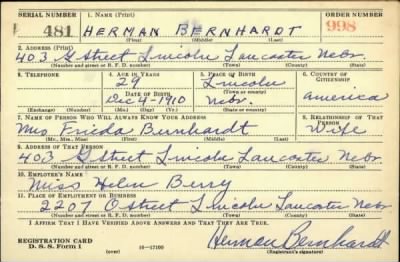 SERIAL NUMBER 1. NAME (Print) ORDER NUMBER
481 HERMAN BERNHARDT 998
(First) (Middle) (Last)
2. ADDRESS (Print)
403 G Street Lincoln Lancaster Nebr.
(Number and street or R. F. D. number) (Town) (County) (State)
3. TELEPHONE 4. AGE IN YEARS 5. PLACE OF BIRTH 6. COUNTRY OF CITIZENSHIP
29 Lincoln
DATE OF BIRTH (Town or county)
Dec 4-1910 Nebr. America
(Exchange) (Number) (Mo.) (Day) (Yr.) (State or country)
7. NAME OF PERSON WHO WILL ALWAYS KNOW YOUR ADDRESS 8. RELATIONSHIP OF THAT PERSON
Mrs Frieda Bernhardt Wife
(Mr., Mrs., Miss) (First) (Middle) (Last)
9. ADDRESS OF THAT PERSON
403 G Street Lincoln Lancaster Nebr.
(Number and street or R. F. D. number) (Town) (County) (State)
10. EMPLOYER'S NAME
Miss Helen Berry
11. PLACE OF EMPLOYMENT OR BUSINESS
2207 O Street Lincoln Lancaster Nebr
(Number and street or R. F. D. number) (Town) (County) (State)
I AFFIRM THAT I HAVE VERIFIED ABOVE ANSWERS AND THAT THEY ARE TRUE.
REGISTRATION CARD
D. S. S. Form 1 (over) 16-17100 Herman Bernhardt
(Registrant's signature)